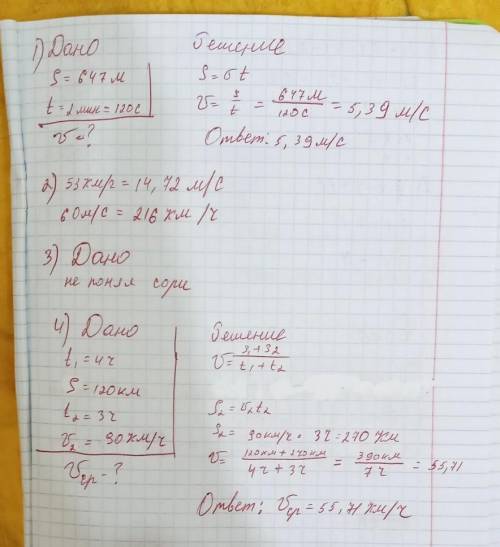 1) Дано
S = 647 м
t = 2 мин = 120 с
v = ?
Решение
S = υt
v = S/t = 647 м/120 с = 5,39 м/с
Ответ: 5,39 м/с
2) 53 км/г = 14,72 м/с
60 м/с = 216 км/ч
3) Дано
не понял сори
4) Дано
t₁ = 4ч
S = 120 км
t₂ = 3ч
v₂ = 90 км/ч
vср - ?
Решение
v = S₁+S₂/t₁+t₂
S₂ = v₂t₂
S₂ = 90 км/ч · 3ч = 270 км
v = 120 км + 270 км/4ч + 3ч = 390 км/7ч = 55,71
Ответ: vср = 55,71 км/ч